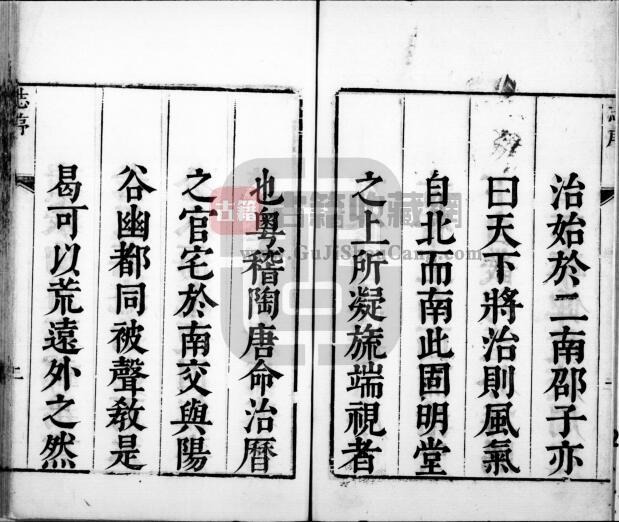 治始於二南邵子亦
曰天下將治則風氣
自北而南此固明堂
之上所凝旒端視者
也粵稽陶唐命治曆
之官宅於南交與陽
谷幽都同被聲敎是
曷可以荒遠外之然
志序
二
古籍
古籍收藏網
www.GuJiShouCang.com